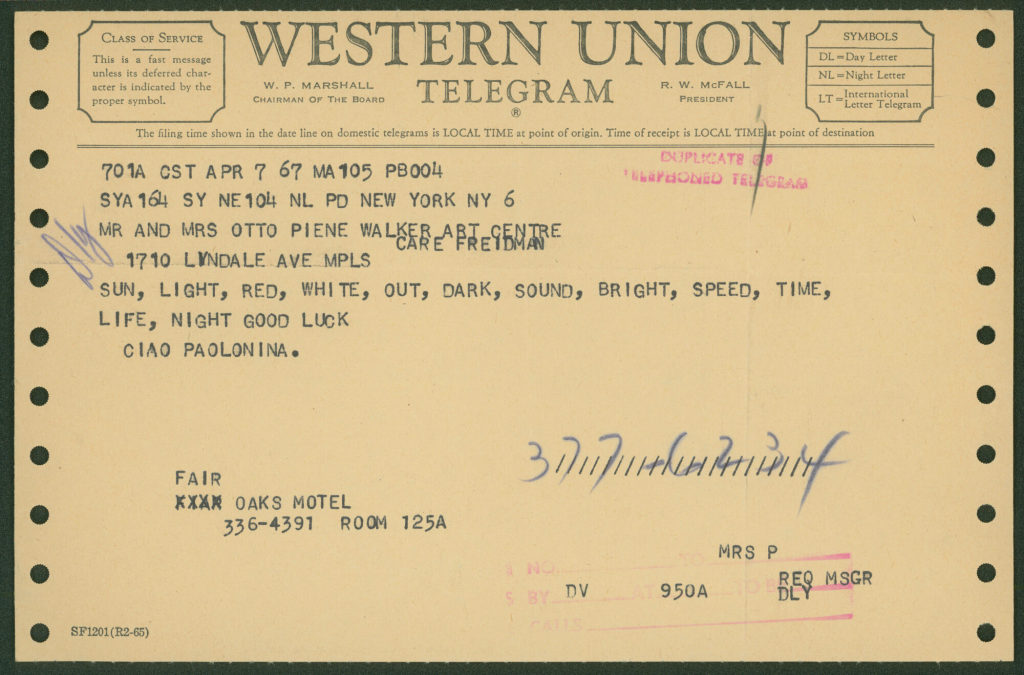 CLASS OF SERVICE
This is a fast message
unless its deferred char-
acter is indicated by the
proper symbol.
WESTERN UNION
TELEGRAM
®
W. P. MARSHALL
CHAIRMAN OF THE BOARD
R. W. McFALL
PRESIDENT
SYMBOLS
DL=Day Letter
NL=Night Letter
LT=International Letter Telegram
The filing time shown in the date line on domestic telegrams is LOCAL TIME at point of origin. Time of receipt is LOCAL TIME at point of destination
701A CST APR 7 67 MA105 PB004
DUPLICATE OF
TELEPHONED TELEGRAM
SYA164 SY NE104 NL PD NEW YORK NY 6
MR AND MRS OTTO PIENE WALKER ART CENTRE
CARE FREIDMAN
1710 LYNDALE AVE MPLS
Dly
SUN, LIGHT, RED, WHITE, OUT, DARK, SOUND, BRIGHT, SPEED, TIME,
LIFE, NIGHT GOOD LUCK
CIAO PAOLONINA.
377-6234
FAIR
OAKS MOTEL
336-4391 ROOM 125A
MRS P
NO. TO
REQ MSGR
DV 950A DLY
BY AT TO BE
CALLS
SF1201(R2-65)